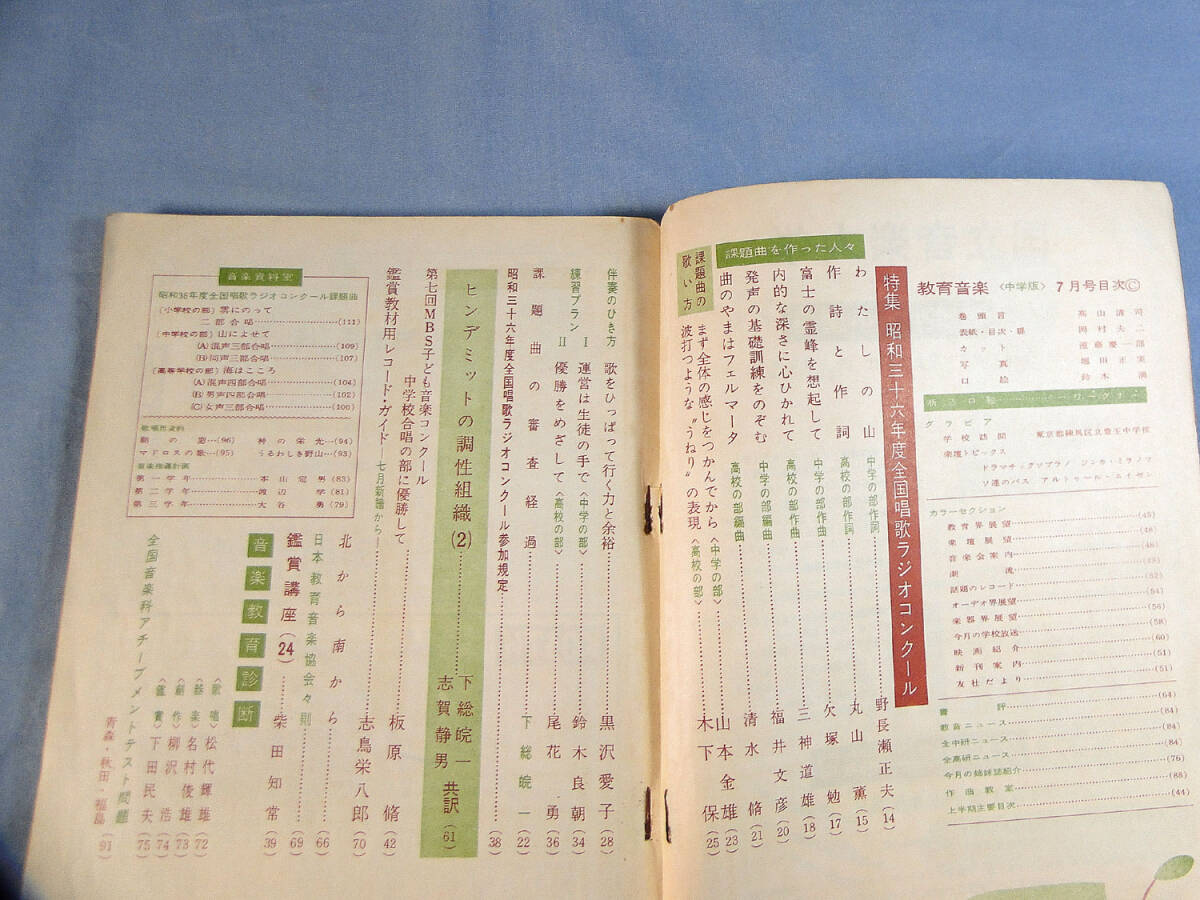 教育音楽〈中学版〉7月号目次Ⓒ
巻頭言 高山清司
表紙・目次・扉 岡村夫二
カット 遠藤慶一郎
写真 堀田正実
口絵 鈴木
グラビア
学校訪問 東京都練馬区立豊玉中学校
楽壇トピックス
カラーセクション
教育界展望……(45)
楽壇展望……(46)
音楽会案内……(48)
潮流
話題のレコード……(52)
オーデオ界展望……(54)
楽器界展望……(56)
今月の学校放送……(58)
映画紹介……(60)
新刊案内……(51)
友社だより……(51)
書評……(64)
教育ニュース……(84)
全中研ニュース……(84)
全高研ニュース……(84)
今月の姉妹誌紹介……(76)
作曲教室……(88)
上半期主要目次……(44)
特集 昭和三十六年度全国唱歌ラジオコンクール
課題曲を作った人々
わたしの山 中学の部作詞……野長瀬正夫(14)
作詩と作詞 高校の部作詞……丸山薫(15)
富士の霊峰を想起して 中学の部作曲……矢塚勉(17)
内的な深さに心ひかれて 高校の部作曲……三神道雄(18)
発声の基礎訓練をのぞむ 中学の部編曲……福井文彦(20)
曲のやまはフェルマータ 高校の部編曲……清水脩(21)
課題曲の歌い方
まず全体の感じをつかんでから〈中学の部〉……山本金雄(23)
波打つような〝うねり〟の表現〈高校の部〉……木下保(25)
伴奏のひき方 歌をひっぱって行く力と余裕……黒沢愛子(28)
練習プランⅠ 運営は生徒の手で〈中学の部〉……鈴木良朝(34)
練習プランⅡ 優勝をめざして〈高校の部〉……尾花勇(36)
課題曲の審査経過……下総皖一(22)
昭和三十六年度全国唱歌ラジオコンクール参加規定……(38)
ヒンデミットの調性組織(2)……下総皖一 志賀静男 共訳(61)
第七回MBS子ども音楽コンクール
中学校合唱の部に優勝して……板原脩(42)
鑑賞教材用レコード・ガイド―七月新譜から―……志鳥栄八郎(70)
北から南から……(66)
日本教育音楽協会々則……(69)
鑑賞講座(24)……柴田知常(39)
音楽教育診断
〈歌唱〉松代輝雄(72)
〈器楽〉名村俊雄(73)
〈創作〉柳沢浩(74)
〈鑑賞〉下田民夫(75)
全国音楽科アチーブメントテスト問題……青森・秋田・福島(91)
音楽資料室
昭和36年度全国唱歌ラジオコンクール課題曲
(小学校の部)雲にのって
二部合唱……(111)
(中学校の部)山によせて
(A)混声三部合唱……(109)
(B)同声三部合唱……(107)
(高等学校の部)海はこころ
(A)混声四部合唱……(104)
(B)男声四部合唱……(102)
(C)女声三部合唱……(100)
歌唱用資料
朝の窓…(96) 神の栄光…(94)
マドロスの歌…(95) うるわしき野山…(93)
音楽指導計画
第一学年……本山宏男(83)
第二学年……渡辺学(81)
第三学年……大谷勇(79)